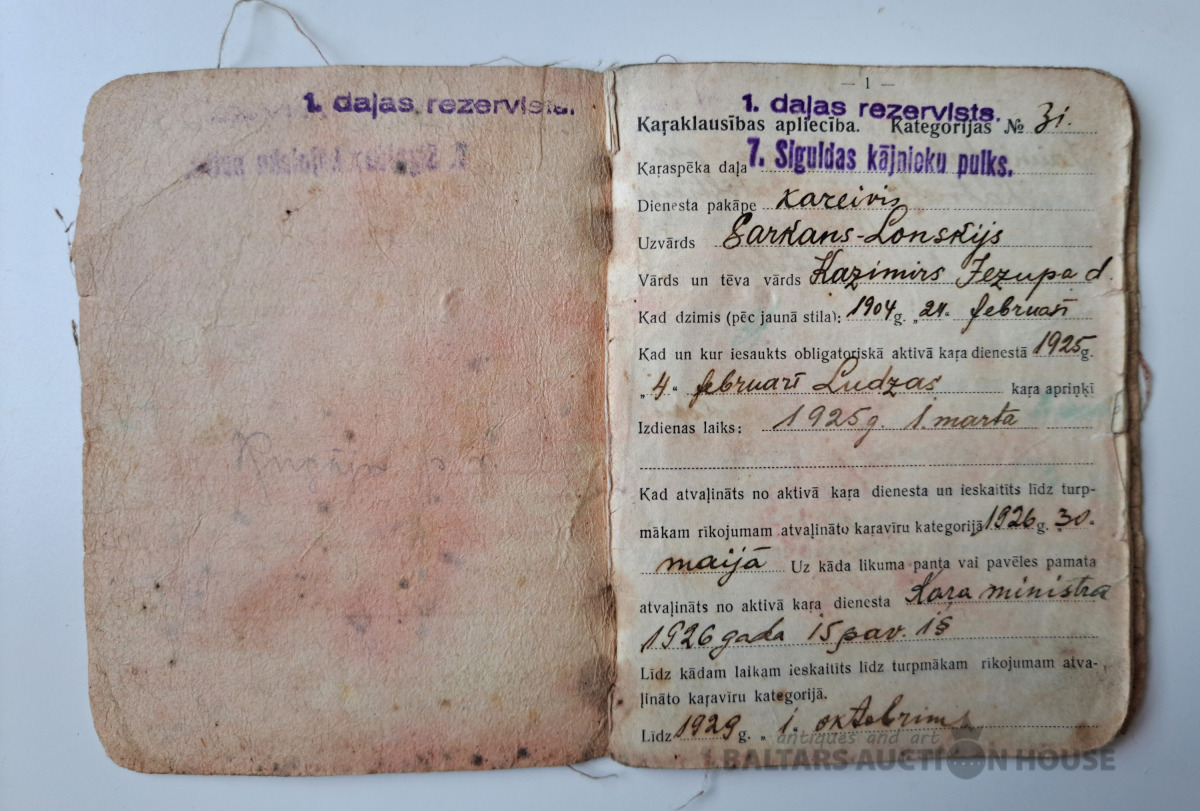 1. daļas rezervists.
— 1 —
1. daļas rezervists.
Kaŗaklausības apliecība. Kategorijas № 31.
Kaŗaspēka daļa 7. Siguldas kājnieku pulks.
Dienesta pakāpe kareivis
Uzvārds Sarkans-Lonskijs
Vārds un tēva vārds Kazimirs Jezupa d.
Kad dzimis (pēc jaunā stila): 1904 g. „24. februarī
Kad un kur iesaukts obligatoriskā aktivā kaŗa dienestā 1925 g.
„4“ februarī Ludzas kaŗa apriņķī
Izdienas laiks: 1925 g. 1 marta
Kad atvaļināts no aktivā kaŗa dienesta un ieskaitīts līdz turp-
mākam rīkojumam atvaļināto kaŗavīru kategorijā 1926 g. 30.
maijā Uz kāda likuma panta vai pavēles pamata
atvaļināts no aktivā kaŗa dienesta Kaŗa ministra
1926 gada 15 pav. 1§
Līdz kādam laikam ieskaitīts līdz turpmākam rīkojumam atva-
ļināto kaŗavīru kategorijā.
Līdz 1929 g. „ 1. oktobrim
antiques and art
BALTARS AUCTION HOUSE